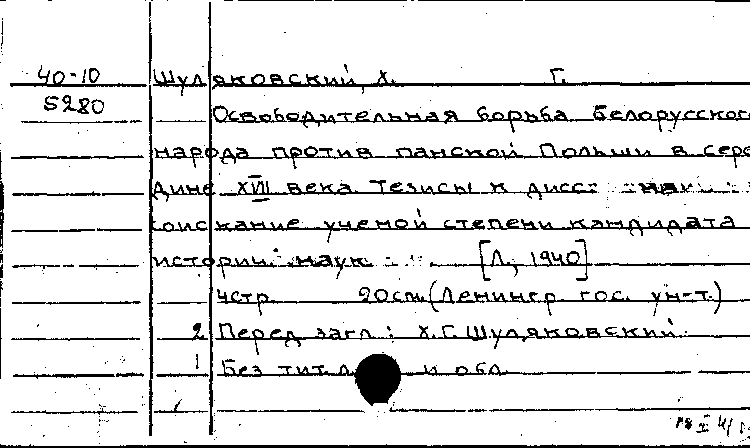 40-10 Шуляковский, Х. Г.
5280 Освободительная борьба белорусского
народа против панской Польши в сере
дине XVII века. Тезисы к дисс. на
соискание ученой степени кандидата
историч. наук [Л., 1940]
4стр. 20см. (Ленингр. гос. ун-т.)
2 Перед загл.: Х.Г. Шуляковский.
1 Без тит. л. и обл.